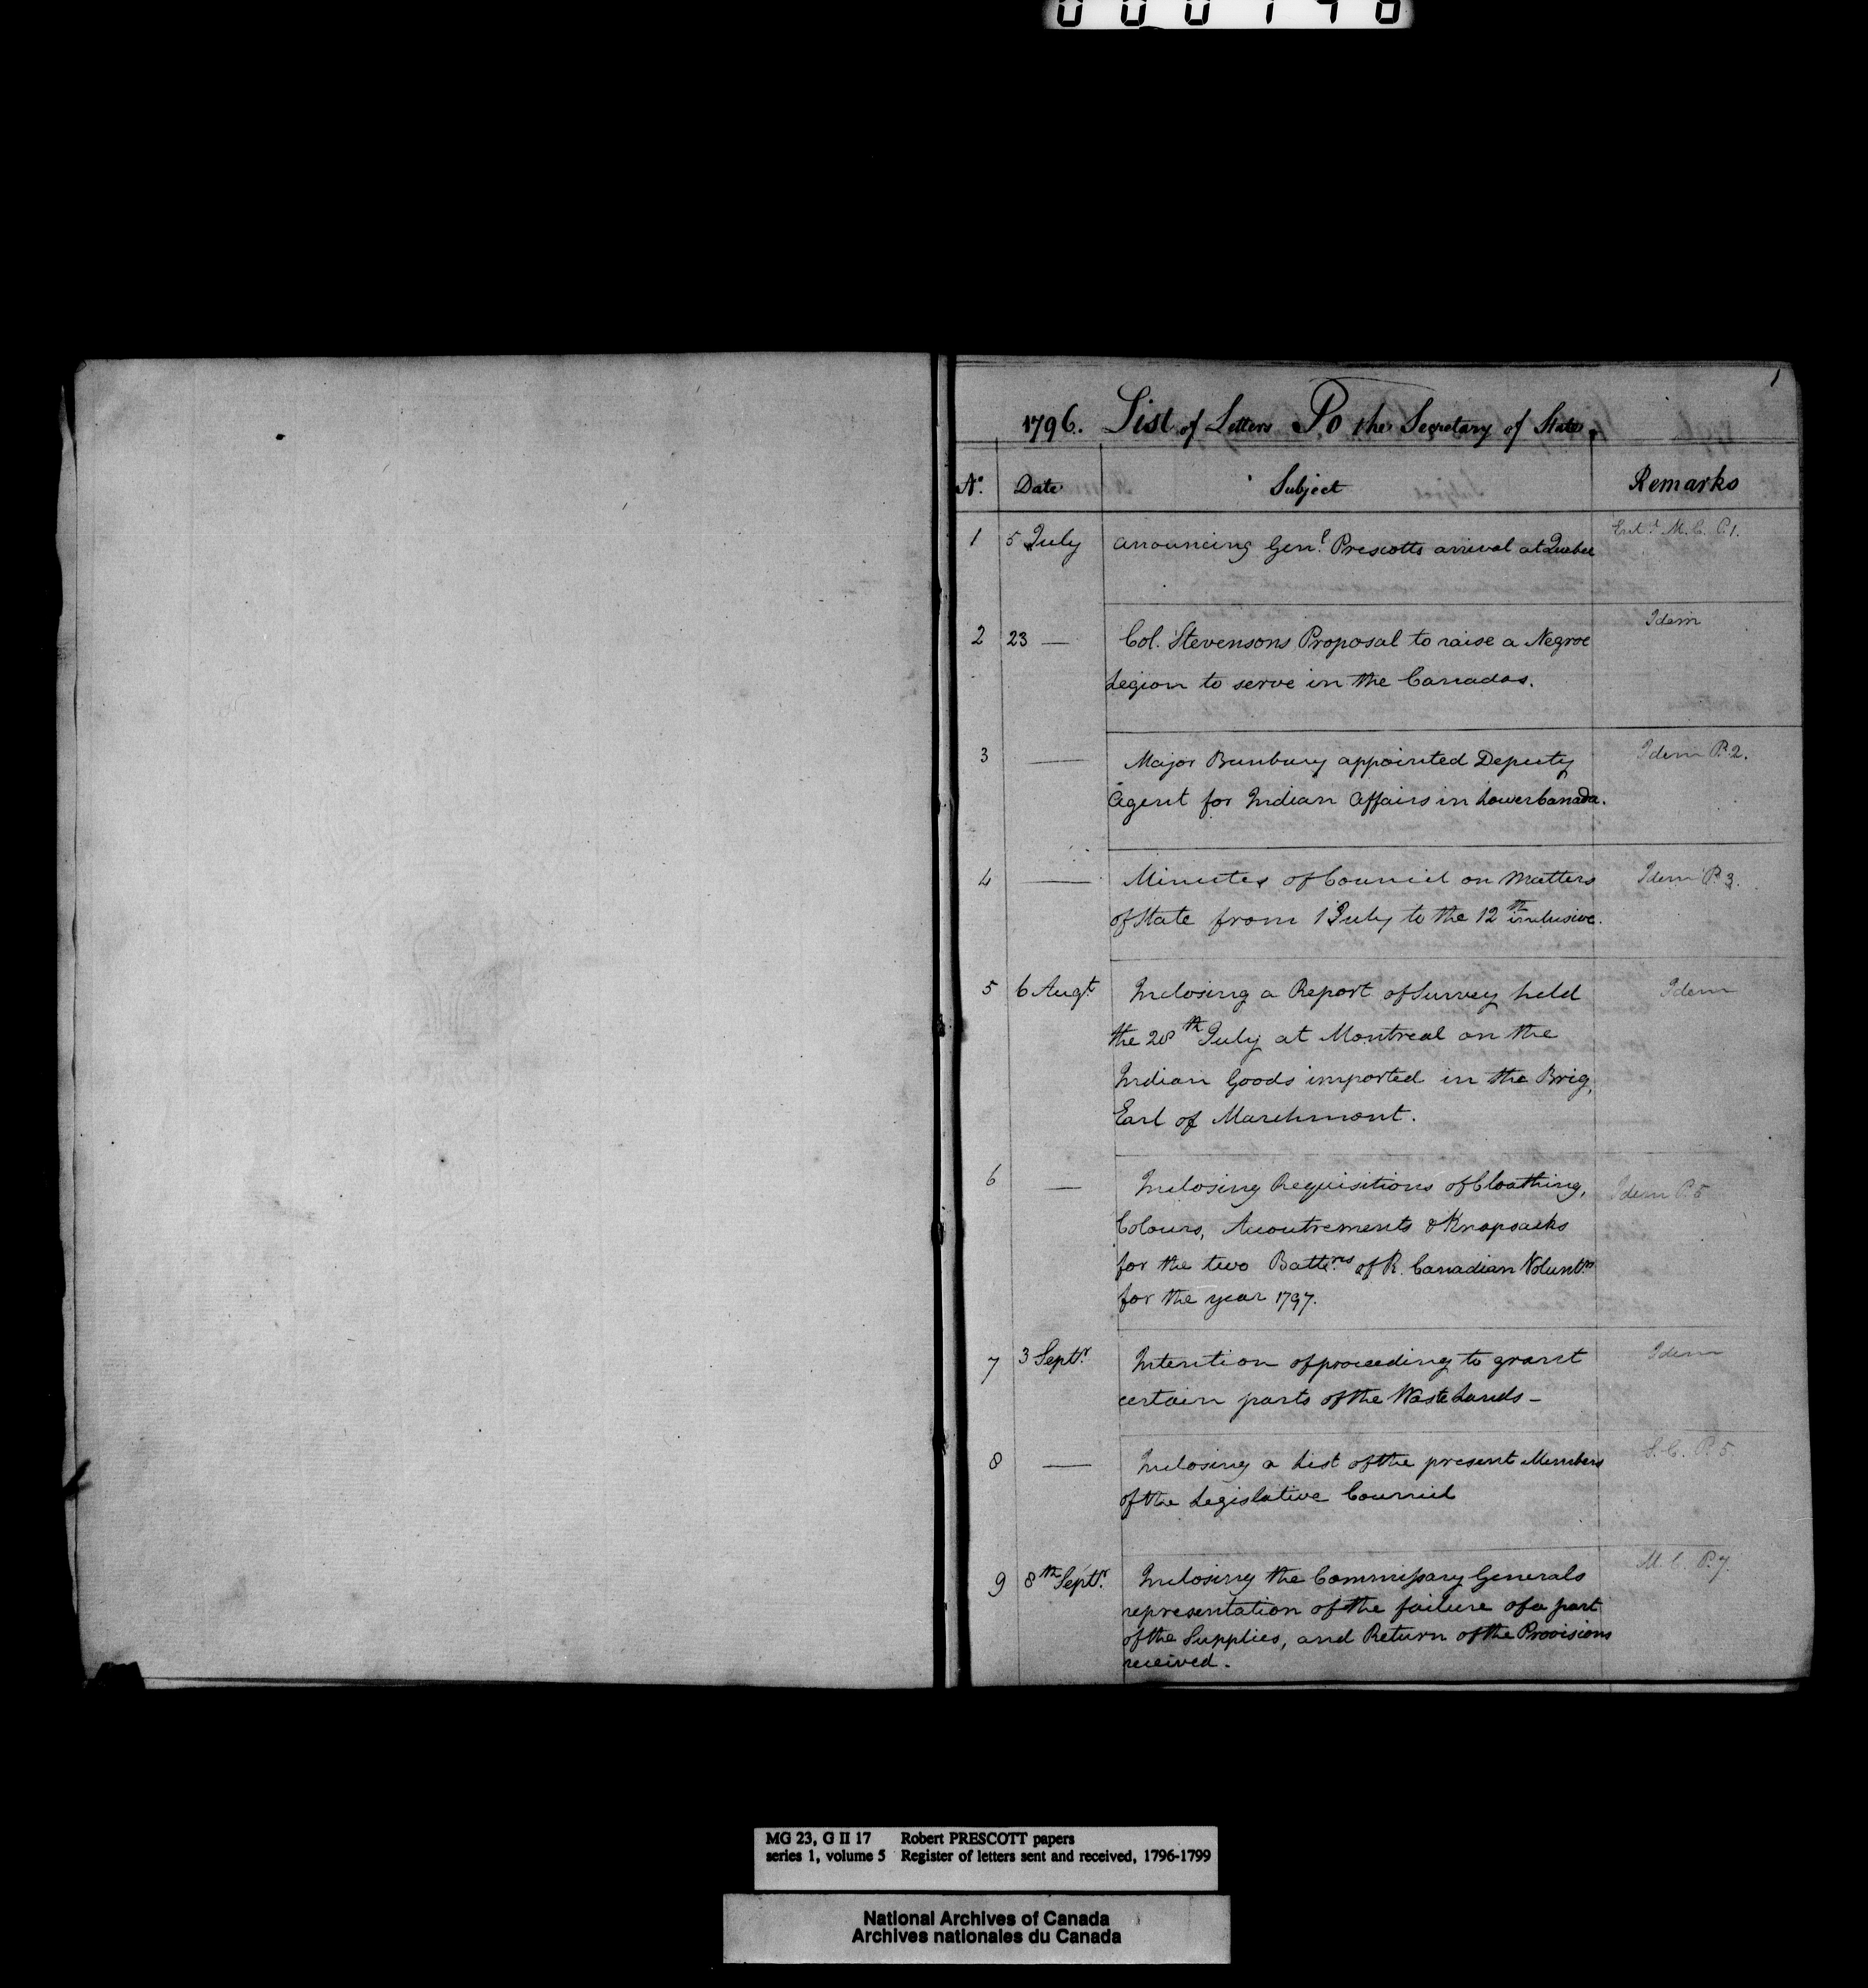 1
1796. List of Letters To the Secretary of State.
No. Date Subject Remarks
1 5 July announcing Genl. Prescotts arrival at Quebec Entd. M.C. P.1.
2 23 — Col. Stevensons Proposal to raise a Negroe Idem
Legion to serve in the Canadas.
3 — Major Bunbury appointed Deputy Idem P.2.
Agent for Indian Affairs in Lower Canada.
4 — Minutes of Council on Matters Idem P.3.
of State from 1 July to the 12th inclusive.
5 6 Augt. Inclosing a Report of Survey held Idem
the 28th July at Montreal on the
Indian Goods imported in the Brig,
Earl of Marchmont.
6 — Inclosing Requisitions of Cloathing, Idem P.5
Colours, Accoutrements & Knapsacks
for the two Battns. of R. Canadian Voluntrs.
for the year 1797.
7 3 Septr. Intention of proceeding to grant Idem
certain parts of the Waste Lands —
8 — Inclosing a List of the present Members S.C. P.5.
of the Legislative Council
9 8th Septr. Inclosing the Commissary Generals M.C. P.7.
representation of the failure of a part
of the Supplies, and Return of the Provisions
received.
MG 23, G II 17 Robert PRESCOTT papers
series 1, volume 5 Register of letters sent and received, 1796-1799
National Archives of Canada
Archives nationales du Canada